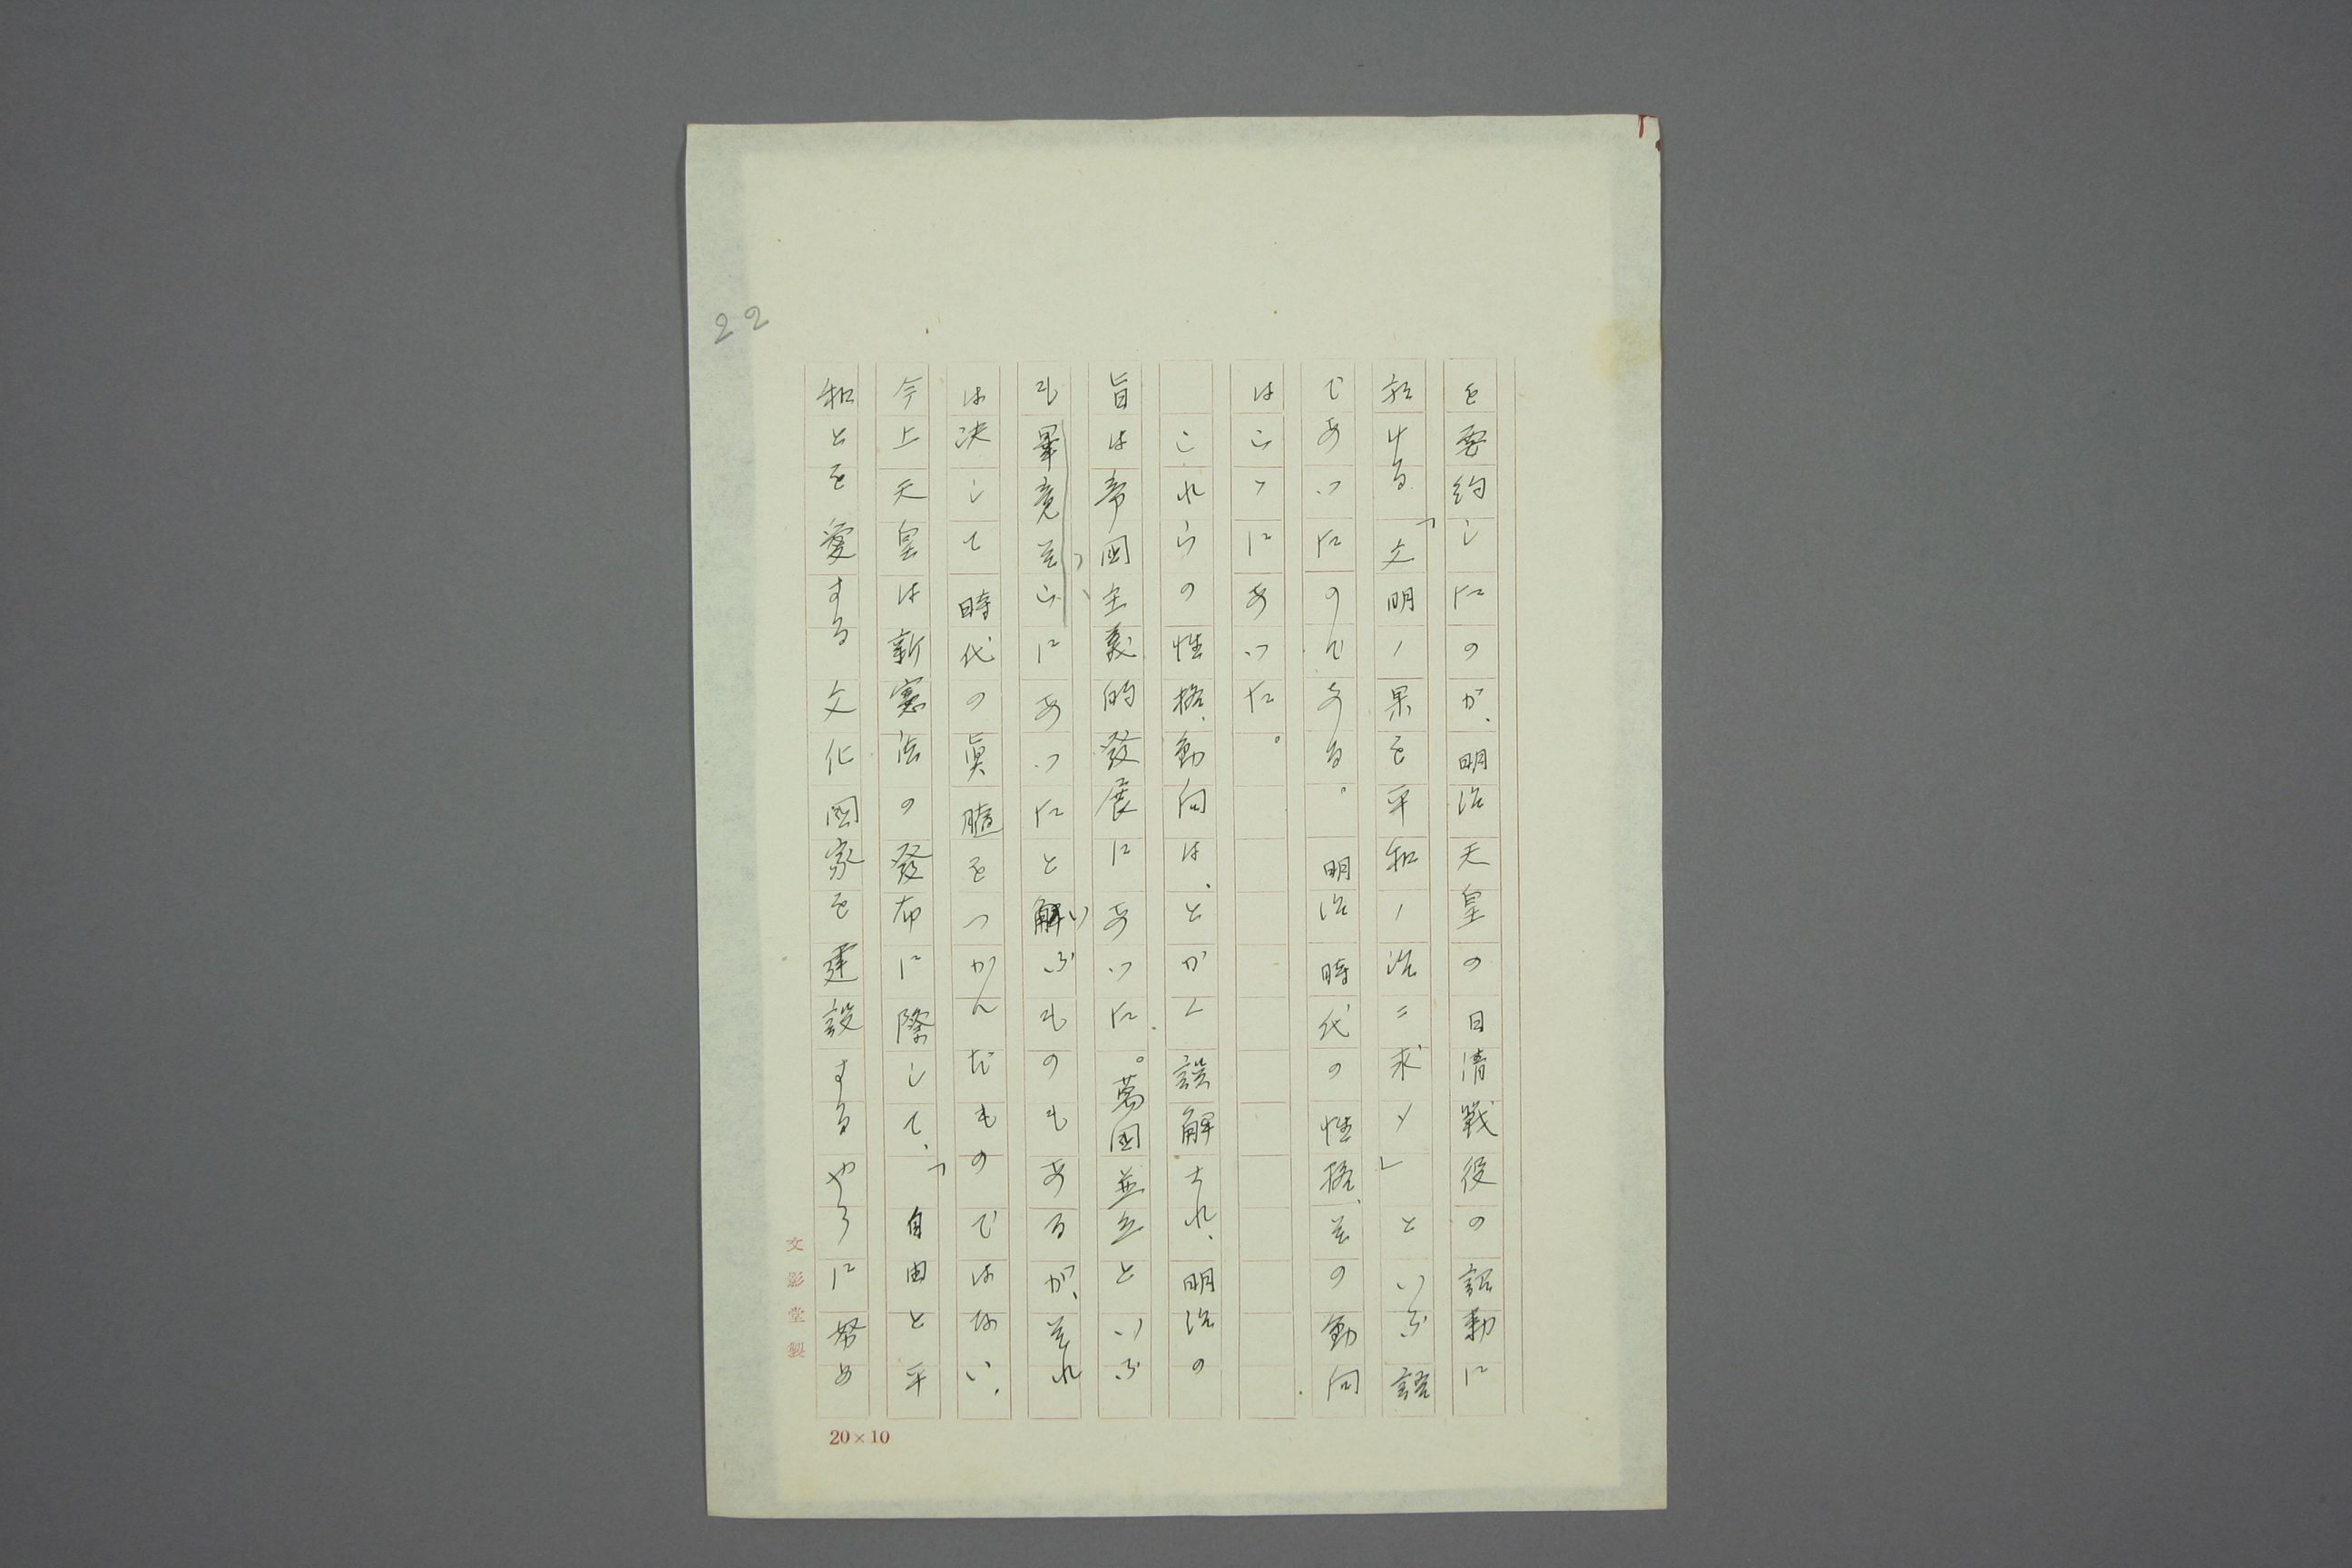 を要約したのが、明治天皇の日清戰役の詔勅に
於ける「文明ノ果を平和ノ治ニ求メ」といふ語
であつたのである。明治時代の性格、その動向
はこゝにあつた。
これらの性格、動向は、とかく誤解され、明治の
旨は帝國主義的發展にあつた。萬國並立といふ
も畢竟そこにあつたといふものもあるが、それ
は決して時代の眞髓をつかんだものではない、
今上天皇は新憲法の發布に際して、「自由と平
和とを愛する文化國家を建設するやうに努め
22
文影堂製
20×10